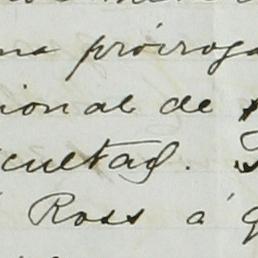 na prórroga
ional de
cultad.
Ross á